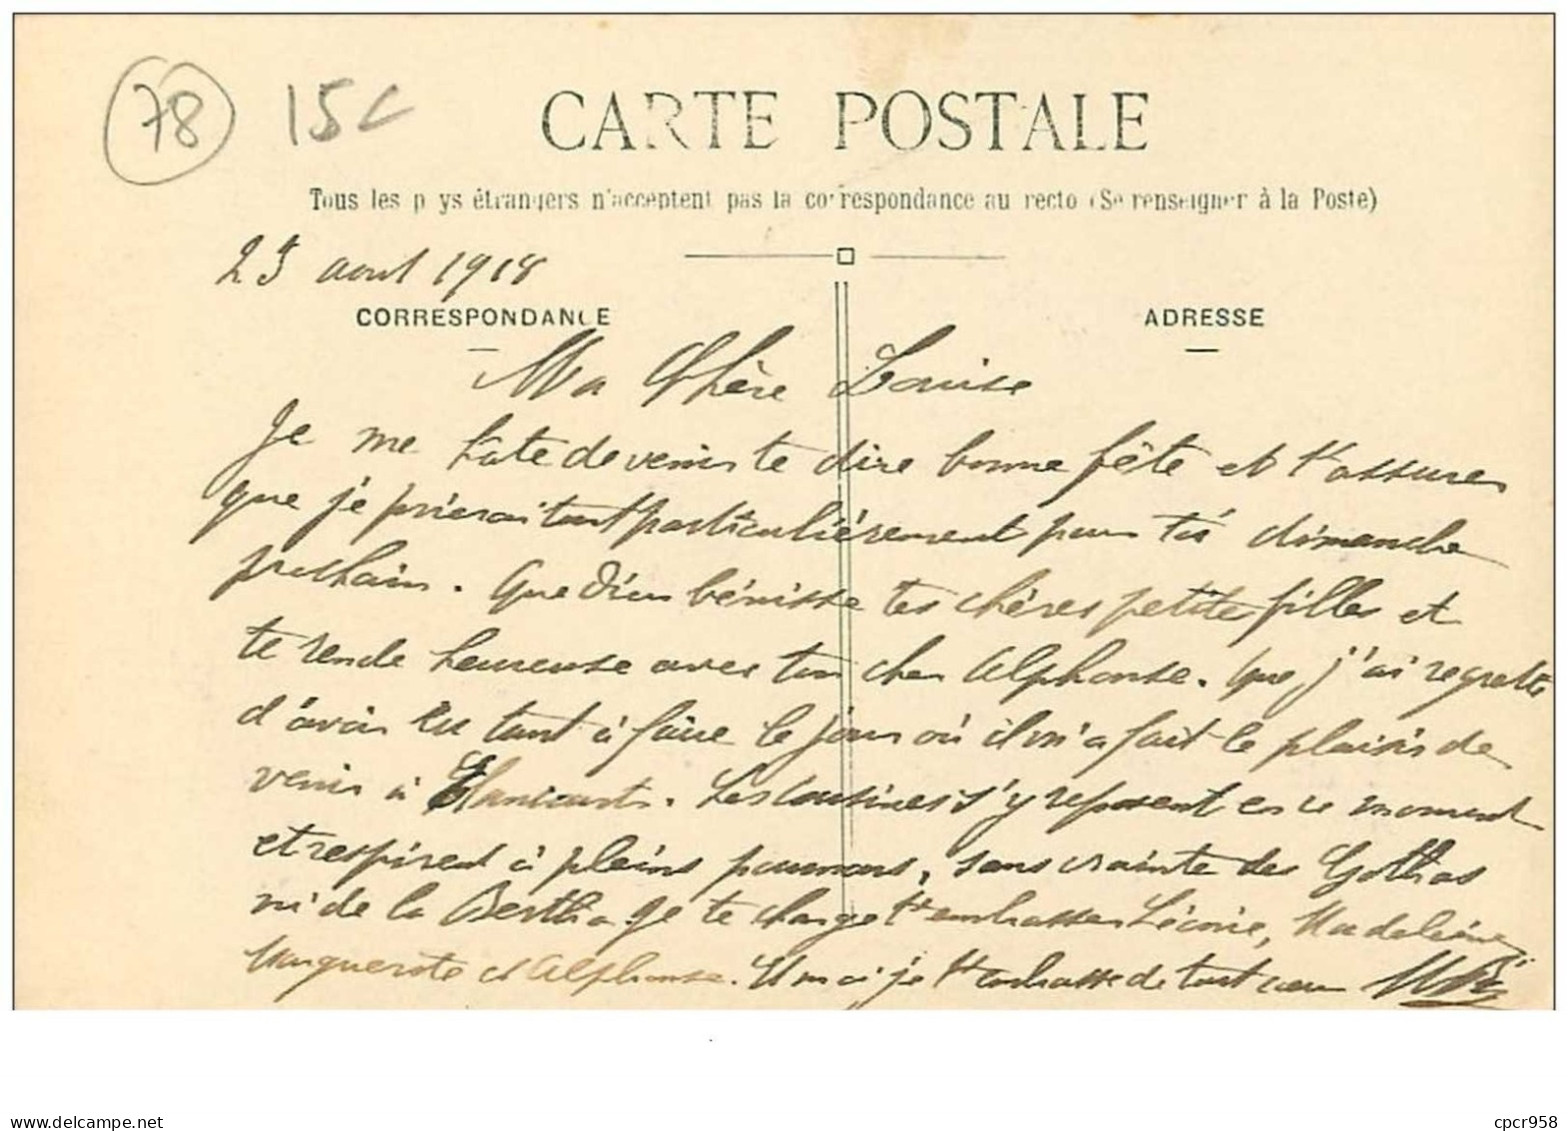 78 15€
CARTE POSTALE
Tous les pays étrangers n'acceptent pas la correspondance au recto (Se renseigner à la Poste)
23 aout 1918
CORRESPONDANCE ADRESSE
Ma Chère Louise
Je me hate de venir te dire bonne fête et t'assurer
que je prierai tout particulièrement pour toi dimanche
prochain. Que Dieu bénisse tes chères petites filles et
te rende heureuse avec ton cher Alphonse. Que j'ai regretté
d'avoir eu tant à faire le jour où il m'a fait le plaisir de
venir à Elancourt. Les cousines s'y reposent en ce moment
et respirent à pleins poumons, sans crainte des Gothas
ni de la Bertha. Je te charge d'embrasser Léonie, Madeleine,
Marguerite et Alphonse. Moi je t'embrasse de tout coeur
delcampe.net
Votre marketplace de collections
cpcr958